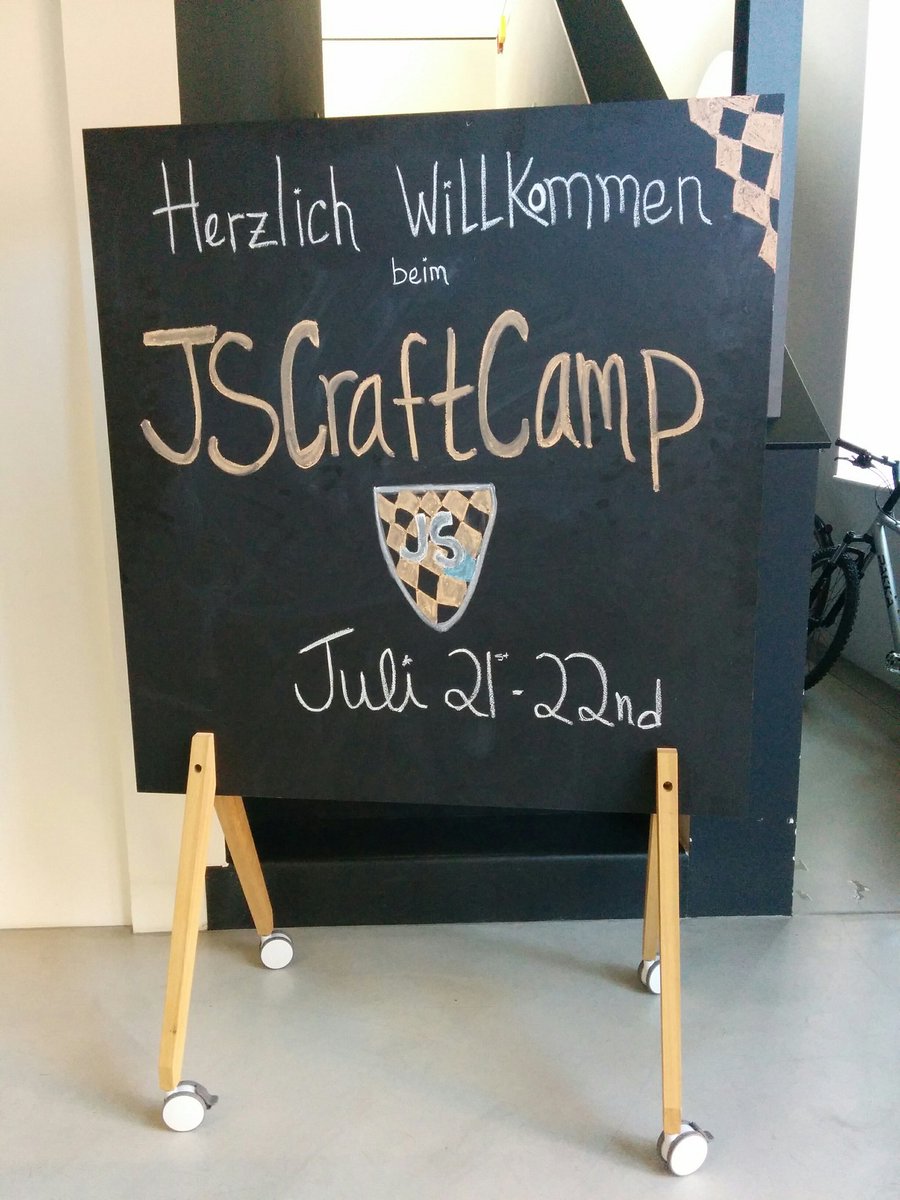 Herzlich Willkommen
beim
JSCraftCamp
JS
Juli 21st - 22nd